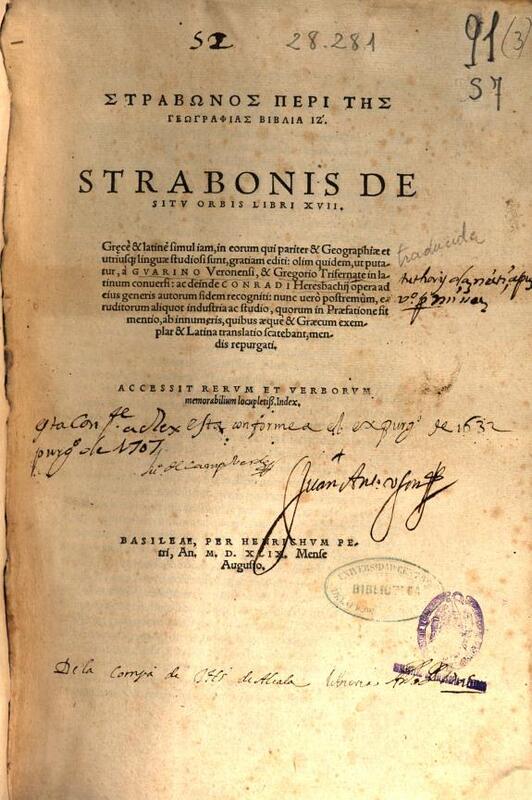 52 28.281 91 (3)
57
ΣΤΡΑΒΩΝΟΣ ΠΕΡΙ ΤΗΣ
ΓΕΩΓΡΑΦΙΑΣ ΒΙΒΛΙΑ ΙΖ΄.
STRABONIS DE
SITV ORBIS LIBRI XVII.
Gręcè & latinè simul iam, in eorum qui pariter & Geographiæ et
utriusq; linguæ studiosi sunt, gratiam editi: olim quidem, ut puta
tur, à GVARINO Veronensi, & Gregorio Trifernate in la
tinum conuersi: ac deinde CONRADI Heresbachij opera ad
eius generis autorum fidem recogniti: nunc uerò postremùm, e
ruditorum aliquot industria ac studio, quorum in Præfatione fit
mentio, ab innumeris, quibus æque & Græcum exem-
plar & Latina translatio scatebant, men-
dis repurgati.
traducida
ACCESSIT RERVM ET VERBORVM
memorabilium locupletiss. Index.
esta conforme el expurg.º de 1632
purg.º de 1707
Juan Ant.
BASILEAE, PER HENRICHVM PE-
tri, An. M. D. XLIX. Mense
Augusto.
UNIVERSIDAD
BIBLIOTECA
De la Compª de de Alcala libreria